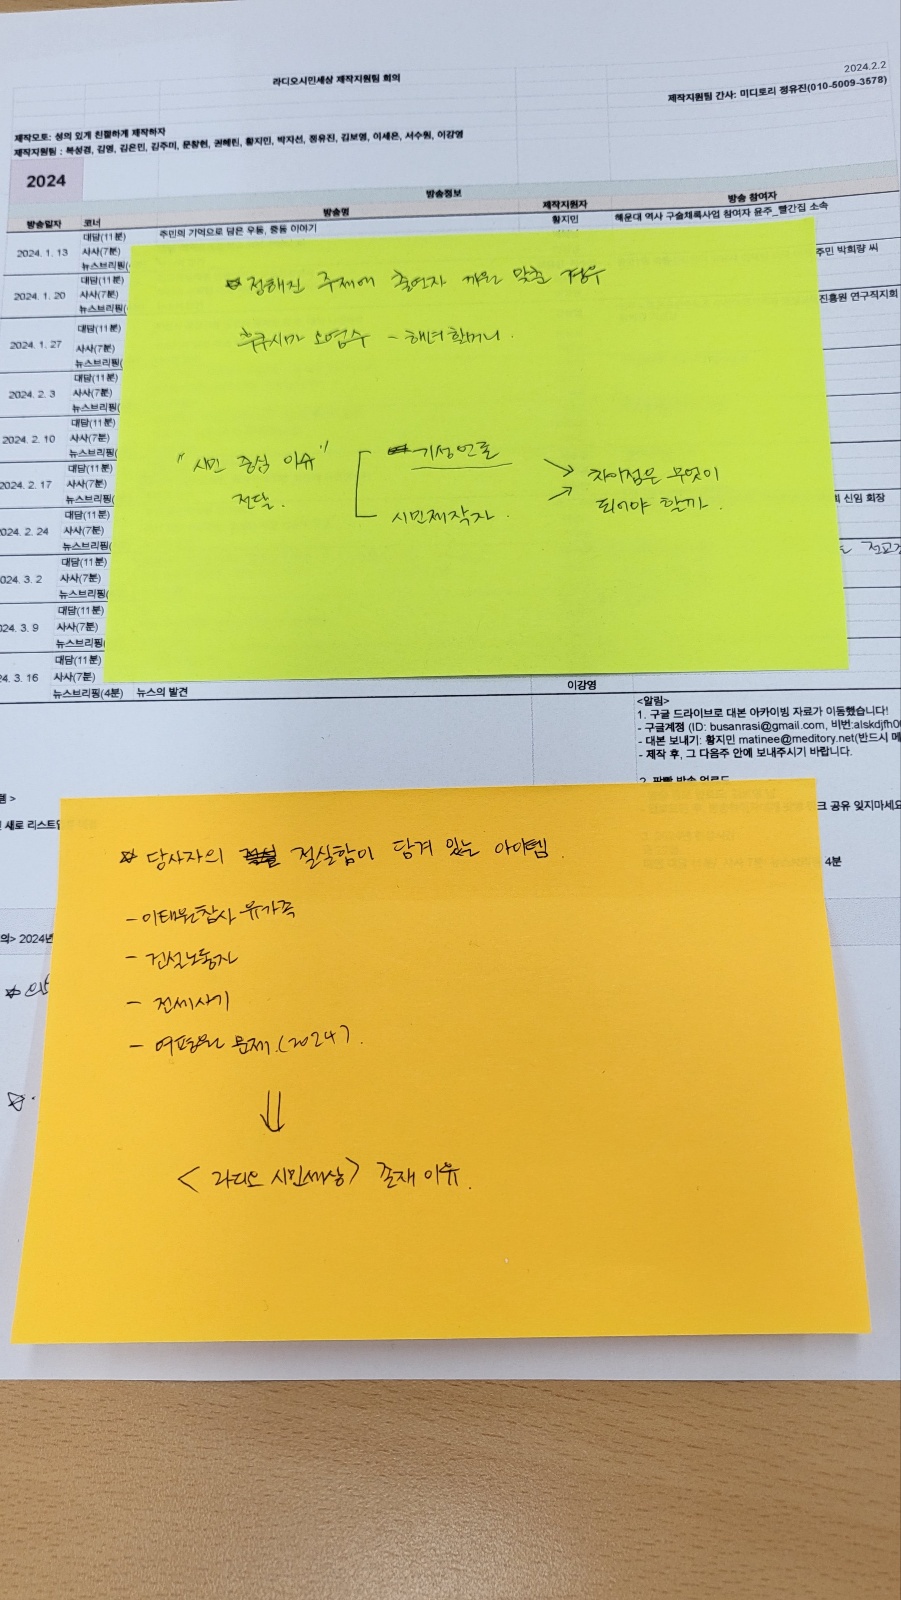 라디오시민세상 제작지원팀 회의
2024.2.2
제작지원팀 간사: 미디토리 정유진(010-5009-3578)
제작모토: 성의 있게 친절하게 제작하자
제작지원팀 : 복성경, 김영, 김은민, 김주미, 문창현, 권혜린, 황지민, 박지선, 정유진, 김보영, 이세은, 서수원, 이강영
2024
방송정보
방송일자 코너 방송명 제작지원자 방송 참여자
대담(11분) 주민의 기억으로 담은 우동, 중동 이야기 황지민 해운대 역사 구술채록사업 참여자 윤주_빨간집 소속
2024. 1. 13 사사(7분) 주민 박희량 씨
뉴스브리핑(
대담(11분)
2024. 1. 20 사사(7분) 진흥원 연구직지회
뉴스브리핑(
대담(11분)
2024. 1. 27 사사(7분)
뉴스브리핑(
대담(11분)
2024. 2. 3 사사(7분)
뉴스브리핑(
대담(11분)
2024. 2. 10 사사(7분)
뉴스브리핑(
대담(11분)
2024. 2. 17 사사(7분)
뉴스브리핑( 신임 회장
대담(11분)
024. 2. 24 사사(7분)
뉴스브리핑(
대담(11분)
024. 3. 2 사사(7분)
뉴스브리핑(
대담(11분)
024. 3. 9 사사(7분)
뉴스브리핑(
대담(11분)
24. 3. 16 사사(7분)
뉴스브리핑(4분) 뉴스의 발견 이강영
정해진 주제에 출연자 끼워 맞춘 경우
후쿠시마 오염수 - 해녀할머니.
"시민 중심 이슈"
전달.
기성언론
시민제작자.
차이점은 무엇이
되어야 할까.
<알림>
1. 구글 드라이브로 대본 아카이빙 자료가 이동했습니다!
- 구글계정 (ID: busanrasi@gmail.com, 비번:alskdjfh0
- 대본 보내기: 황지민 matinee@meditory.net(반드시 메
- 제작 후, 그 다음주 안에 보내주시기 바랍니다.
2. 팟빵 방송 업로드
크 공유 잊지마세요
4분
템 >
새로 리스트업
의> 2024년
당사자의 절실함이 담겨 있는 아이템.
- 이태원참사 유가족
- 건설노동자
- 전세사기
- 여평원 문제.(2024).
<라디오 시민세상> 존재 이유.